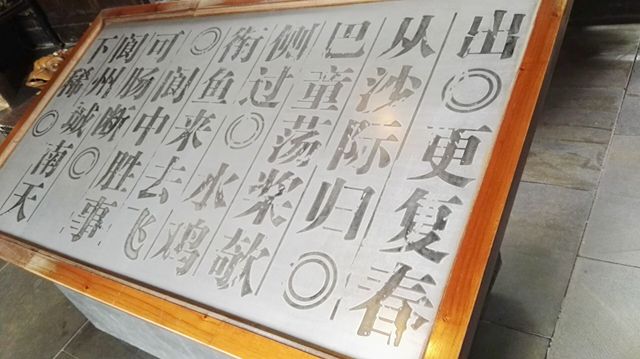 出◎更复春
从沙际归◎
巴童荡桨欹
侧过◎水鸡
衔鱼来去飞
◎阆中胜事
可肠断◎
阆州城南天
下稀◎